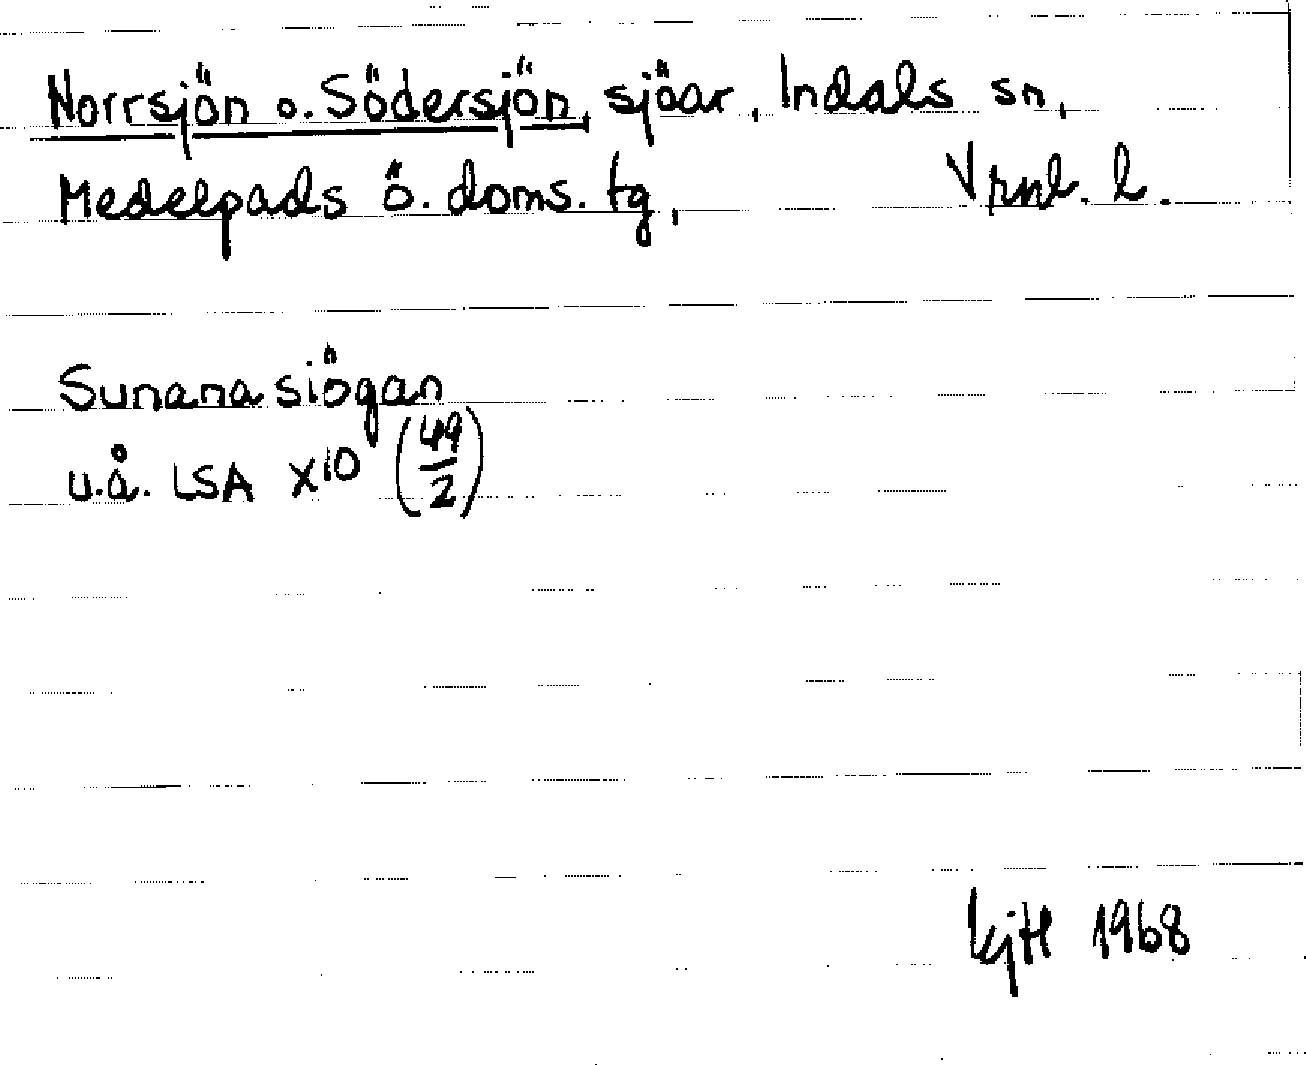 Norrsjön o. Södersjön, sjöar, Indals sn,
Medelpads ö. doms. tg, Vrnl. l.
Sunana siögan
u.å. LSA X10 (49/2)
KjH 1968